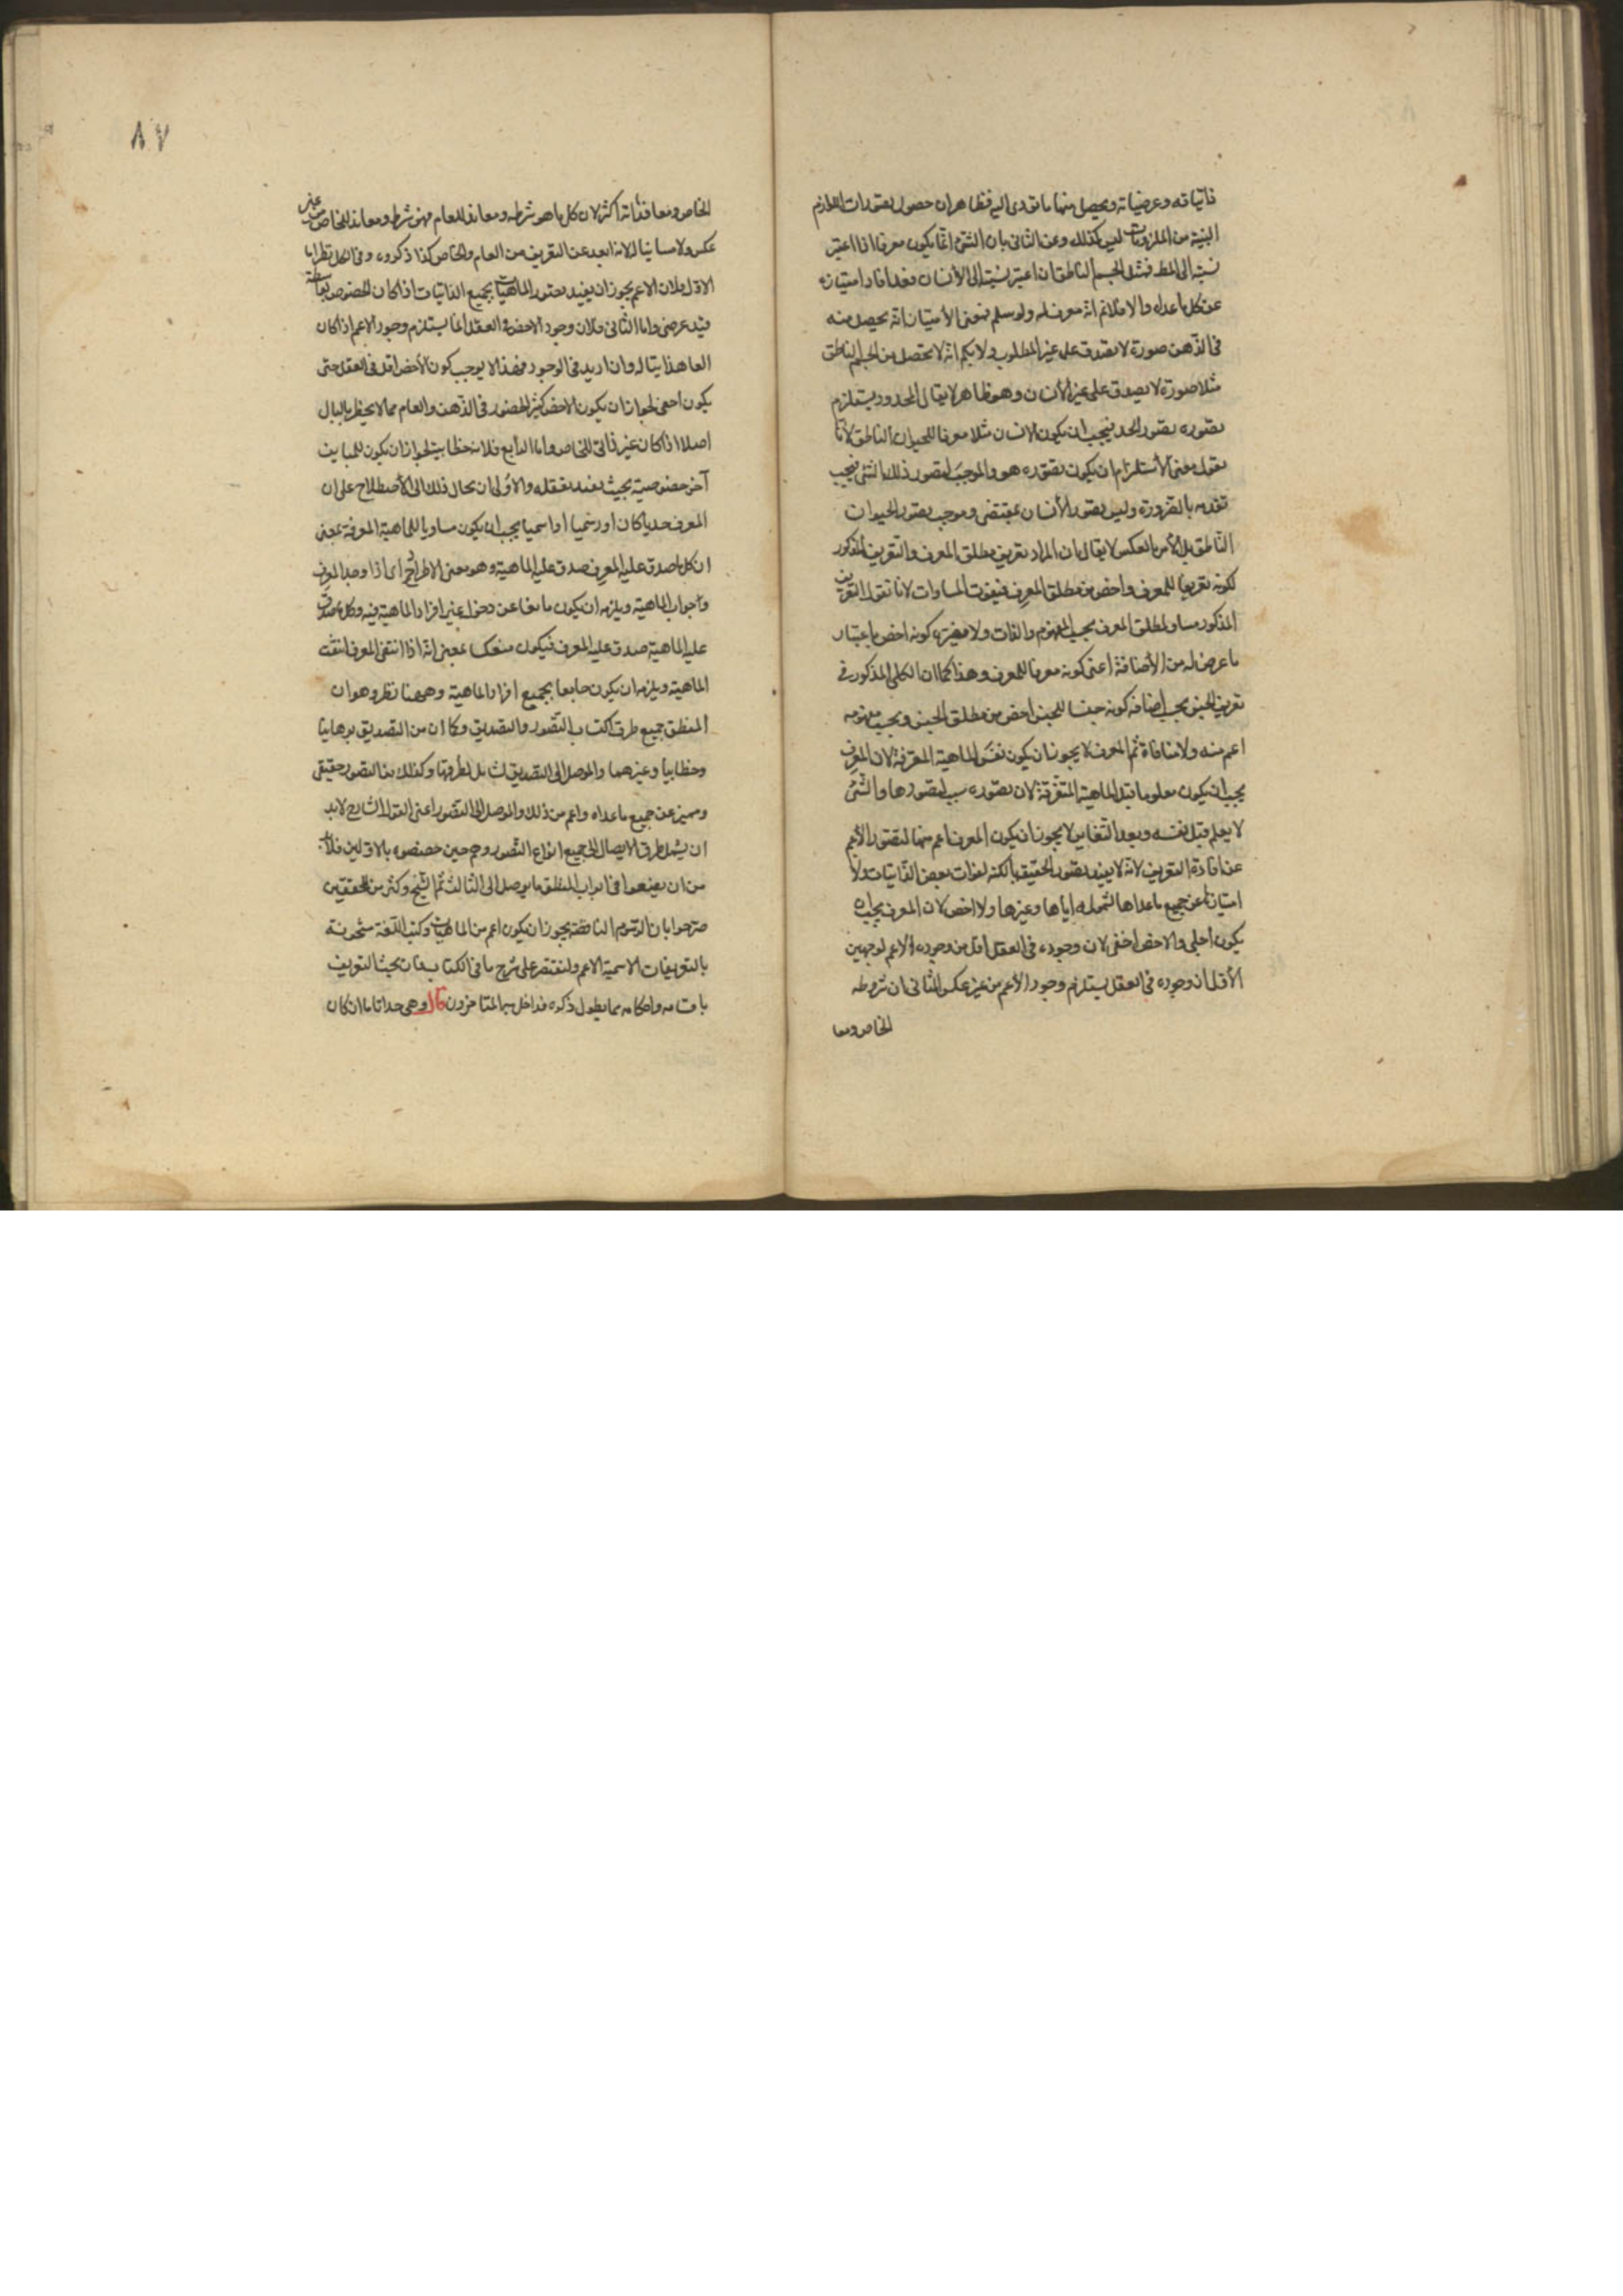 ذاتياته وعرضياته ويحصل منها ما تؤدى اليه فظاهر ان حصول تصورات اللوازم
البينة من الملزومات ليس كذلك وعن الثانى بان الشئ انما يكون معرفا اذا اعتبر
نسبته الى المط فمثل الجسم الناطق ان اعتبر نسبته الى الأنسان فقد افاد امتيازه
عن كل ما عداه والا فلا نم انه معرف له ولو سلم فمعنى الأمتياز انه يحصل منه
فى الذهن صورة لا تصدق على غير المطلوب ولا يكم انه لا تحصل من الجسم الناطق
مثلا صورة لا يصدق على غير الأنسان وهو ظاهر لا يقال المحدود يستلزم
تصوره تصور الحد فيجب ان يكون الانسان مثلا معرفا للحيوان الناطق لأنا
نقول معنى الأستلزام ان يكون تصوره هو الموجب لتصور ذلك الشئ فيجب
تقدمه بالضرورة وليس تصور الأنسان بمقتضى وموجب تصور الحيوان
الناطق بل الأمر بالعكس لا يقال بان المراد تعريف مطلق المعرف والتعريف المذكور
لكونه تعريفا للمعرف واخص من مطلق المعرف فيفوت المساوات لانا نقول التعريف
المذكور مساو لمطلق المعرف بحسب المفهوم والذات ولا يضره كونه اخص باعتبار
ما عرض له من الأضافة اعنى كونه معرفا للمعرف وهذا كما ان الكلى المذكور فى
تعريف الجنس بحسب اضافة كونه جنسا للجنس اخص من مطلق الجنس وبحسب مفهومه
اعم منه ولا منافاة ثم المعرف لا يجوز ان يكون نفس الماهية المعرفة لان المعرف
يجب ان يكون معلوما قبل الماهية المتعرفة لان تصوره سبب لتصورها والشئ
لا يعلم قبل نفسه وبعد التغاير لا يجوز ان يكون المعرف اعم منها لقصور الأعم
عن افادة التعريف لانه لا يفيد تصور الحقيقة بالكنه لفوات بعض الذاتيات ولا
امتيازها عن جميع ما عداها لشموله اياها وغيرها ولا اخص لان المعرف يجب ان
يكون اجلى والاخص اخفى لان وجوده فى العقل اقل من وجوده الاعم لوجهين
الأول ان وجوده فى العقل يستلزم وجود الأعم من غير عكس الثانى ان شروطه
الخاص ومعا
٨٧
الخاص ومعانداته اكثر لان كل ما هو شرط ومعاند للعام فهو شرط ومعاند للخاص من غير
عكس ولا مباينا لانه ابعد عن التعريف من العام والخاص كذا ذكروه وفى الكل نظر اما
الاول فلان الاعم يجوز ان يفيد تصور الماهيات بجميع الذاتيات اذا كان الخصوص بواسطة
قيد عرضى واما الثانى فلان وجود الاخص فى العقل انما يستلزم وجود الاعم اذا كان
العام ذاتيا له وان اريد فى الوجود فهذا لا يوجب كون الأخص اقل فى العقل حتى
يكون اخفى لجواز ان يكون الاخص كثير الحضور فى الذهن والعام مما لا يخطر بالبال
اصلا اذا كان غير ذاتى للخاص واما الرابع فلانه خطابية لجواز ان يكون للمباين
آخر خصوصية بحيث يفيد تعقله والأولى ان يحال ذلك الى الأصطلاح على ان
المعرف حديا كان او رسميا او اسميا يجب ان يكون مساويا للماهية المعرفة بمعنى
ان كل ما صدق عليه المعرف صدق عليه الماهية وهو معنى الاطراد اى اذا وجد المعرف
وجد الماهية ويلزمه ان يكون مانعا عن دخول غير افراد الماهية فيه وكل ما صدق
عليه الماهية صدق عليه المعرف فيكون منعكسا بمعنى انه اذا انتفى المعرف انتفت
الماهية ويلزمه ان يكون جامعا بجميع افراد الماهية وههنا نظر وهو ان
المنطق جميع طرق اكتساب التصور والتصديق وكما ان من التصديق برهانيا
وخطابيا وغيرهما والموصل الى التصديق شامل لطرقها وكذلك من التصور حقيقى
ومميز عن جميع ما عداه واعم من ذلك والموصل الى التصور اعنى القول الشارح لا بد
ان يشمل طرق الايصال الى جميع انواع التصور وهم حين خصصوه بالاولين فلا بد
من ان يضعوا فى ابواب المنطق ما يوصل الى الثالث ثم الشيخ وكثير من المحققين
صرحوا بان الرسوم الناقصة يجوز ان يكون اعم من الماهيات وكتب اللغة مشحونة
بالتعريفات الاسمية الاعم ولنقتصر على شرح ما فى الكتاب فان بحث التعريف
باقسامه واحكامه مما يطول ذكره قد اخل بها المتاخرون قال وهى حدا تاما ان كان